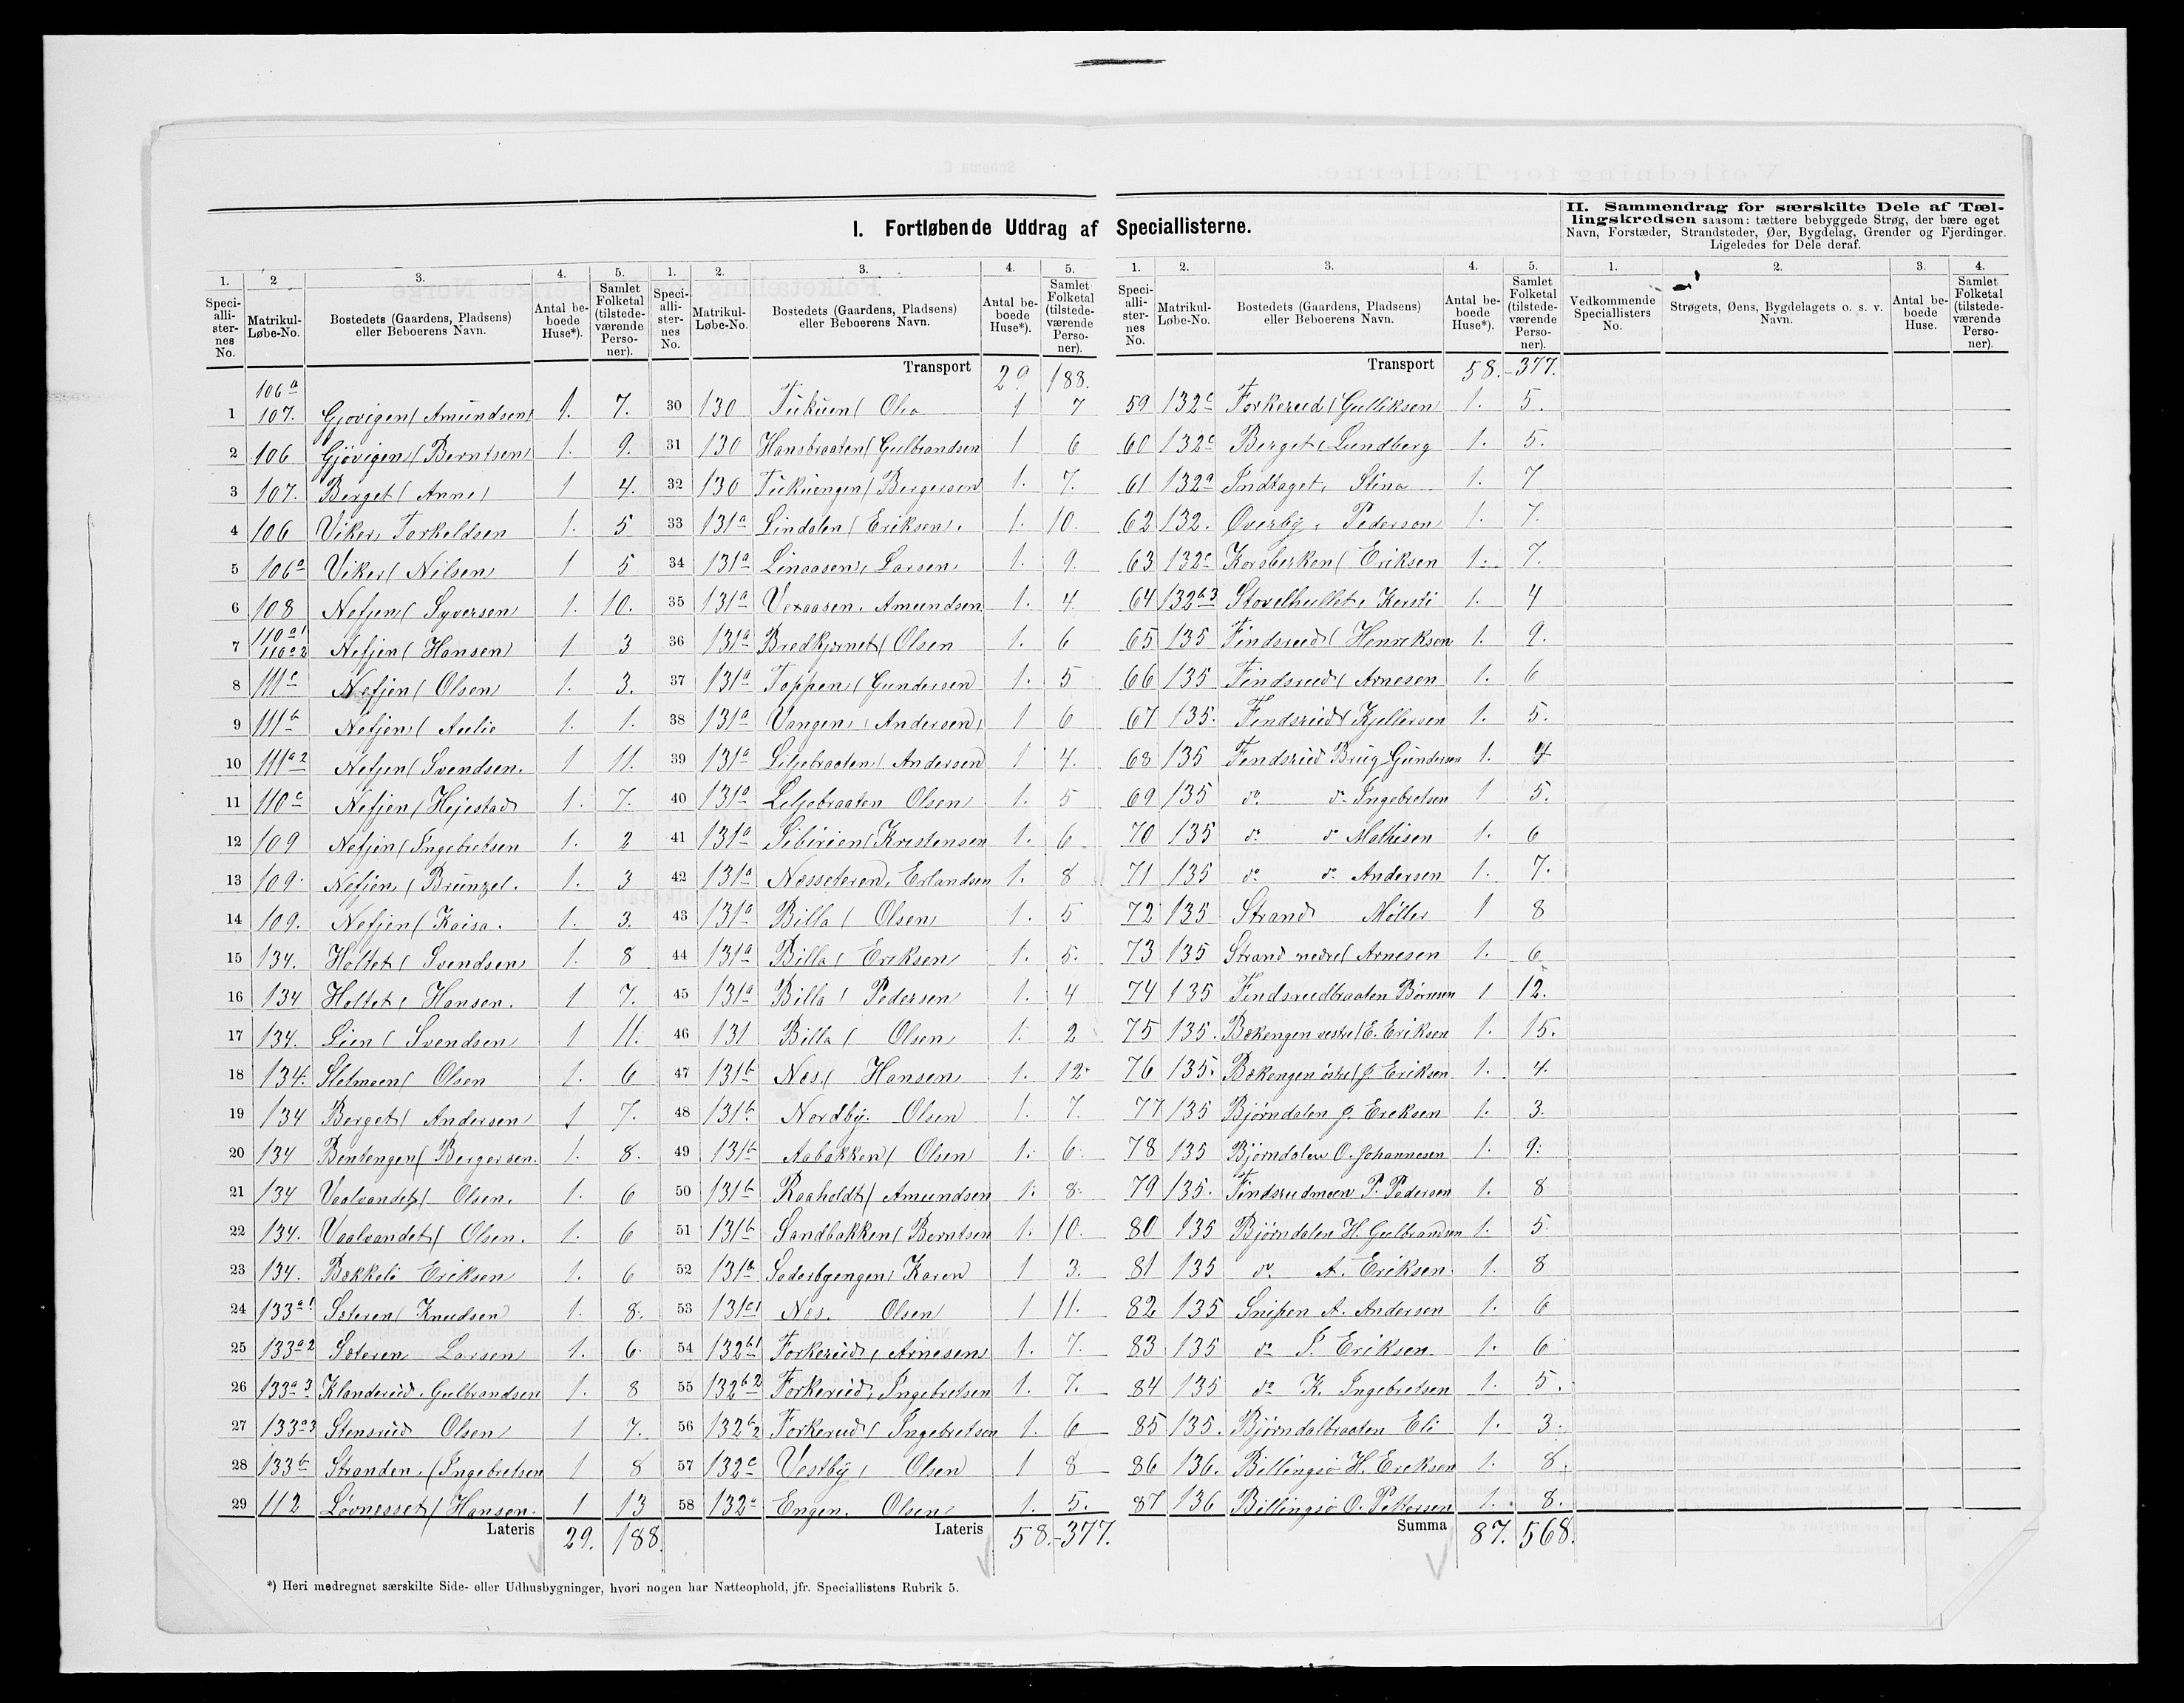 I. Fortløbende Uddrag af Speciallisterne.
II. Sammendrag for særskilte Dele af Tællingskredsen saasom: tættere bebyggede Strøg, der bære eget
Navn, Forstæder, Strandsteder, Øer, Bygdelag, Grender og Fjerdinger.
Ligeledes for Dele deraf.
1. 2 3. 4. 5.
Speciallisternes No. Matrikul-Løbe-No. Bostedets (Gaardens, Pladsens) eller Beboerens Navn. Antal beboede Huse*). Samlet Folketal (tilstedeværende Personer).
106a
1 107. Gjøvigen (Amundsen) 1. 7.
2 106 Gjøvigen (Berntsen) 1. 9.
3 107. Berget (Anne) 1 4.
4 106 Viker, Torkeldsen 1. 5
5 106a Viker (Nilsen) 1 5
6 108 Nefjen (Syversen) 1. 10.
7 110a1 110a2 Nefjen (Hansen) 1 3
8 111c Nefjen (Olsen) 1. 3.
9 111b Nefjen (Aulie 1. 1.
10 111a2 Nefjen (Svendsen. 1 11.
11 110c Nefjen (Hejestad) 1. 7.
12 109 Nefjen (Ingebretsen 1. 2
13 109. Nefjen (Brünzel. 1. 3
14 109. Nefjen (Kaisa. 1. 3.
15 134. Holtet (Svendsen) 1. 8
16 134 Holtet, Hansen. 1 7.
17 134. Lien (Svendsen 1 11.
18 134. Sletmoen (Olsen 1. 6
19 134 Berget (Andersen) 1 7.
20 134 Bentengen (Bergersen. 1. 8.
21 134 Vaalvandet (Olsen. 1. 6
22 134. Vaalvandet (Olsen. 1. 6
23 134. Bækkeli Eriksen 1. 6
24 133a1 Sæteren (Knudsen) 1. 8.
25 133a2 Sæteren Larsen 1. 6
26 133a3 Klanderud. Gulbrandsen 1. 8
27 133a3 Stensrüd Olsen 1 7.
28 133b Stranden. (Ingebretsen 1 8
29 112 Løvnesset (Hansen. 1 13
Lateris 29. 188.
1. 2. 3. 4. 5.
Speciallisternes No. Matrikul-Løbe-No. Bostedets (Gaardens, Pladsens) eller Beboerens Navn. Antal beboede Huse*). Samlet Folketal (tilstedeværende Personer).
Transport 29 188.
30 130 (Olia 1 7
31 130 Hansbraaten (Gulbrandsen 1 6
32 130 (Bergersen) 1. 7.
33 131a Lindalen (Eriksen. 1. 10.
34 131a Linaasen, Larsen 1. 9.
35 131a Amundsen 1. 4.
36 131a Bredkjernet (Olsen 1. 6
37 131a Toppen (Gundersen) 1. 5
38 131a Vangen, (Andersen) 1 6
39 131a Liljebraaten (Andersen) 1 4.
40 131a Liljebraaten Olsen 1. 5
41 131a Sibirien (Kristensen 1. 6
42 131a Næsseteren, Erlandsen 1. 8
43 131a Billa (Olsen) 1. 5
44 131a Billa (Eriksen) 1. 5.
45 131a Billa (Pedersen 1. 4
46 131 Billa (Olsen 1. 2
47 131b Næs, Hansen 1. 12.
48 131b Nordby. Olsen 1. 7
49 131b Aabakken (Olsen 1. 6
50 131b Raaholdt (Amundsen 1. 8
51 131b Sandbakken (Berntsen 1. 10.
52 131b Karen 1 3.
53 131c1 Næs. Olsen 1 11.
54 132b1 Forkerüd, Arnesen 1. 7.
55 132b2 Forkerüd, Ingebretsen 1. 7.
56 132b2 Forkerud (Ingebretsen 1. 6
57 132c Vestby, Olsen 1 8
58 132c Engen. Olsen 1. 5.
Lateris 58. 377.
1. 2. 3. 4. 5.
Speciallisternes No. Matrikul-Løbe-No. Bostedets (Gaardens, Pladsens) eller Beboerens Navn. Antal beboede Huse*). Samlet Folketal (tilstedeværende Personer).
Transport 58. 377.
59 132c Forkerud (Gulliksen 1. 5.
60 132c Berget, Lundberg 1. 5.
61 132a Indtaget, Stina 1. 7
62 132. Overby, Pederson 1. 7.
63 132c Korsberken (Eriksen 1. 7.
64 132b3 Kersti 1. 4
65 135 Findsrud (Henriksen 1. 9.
66 135 Findsrud (Arnesen 1. 6
67 135. Findsrüd (Kjellersen 1. 5.
68 135 Findsrüd Brug Gundersen 1. 4
69 135 do. do. Ingebretsen 1 5.
70 135 do. do. Mathisen 1. 6
71 135 do. do. Andersen 1. 7.
72 135 Strand Møller 1 8
73 135 Strand nedre (Arnesen 1. 6
74 135 Findsrudbraaten Børresen 1 12.
75 135. Bækengen vestre (E. Eriksen 1. 15.
76 135. Bækengen østre (J. Eriksen 1. 4.
77 135 Bjørndalen J. Ereksen 1. 3.
78 135 Bjørndalen O. Johannesen 1. 9.
79 135. Findsrudmoen P. Pedersen 1. 8
80 135 Bjørndalen H. Gulbrandsen 1. 5.
81 135 do. A. Eriksen. 1. 8
82 135 Snipen A. Andersen 1. 6
83 135 do. P. Eriksen. 1. 6
84 135 do. K. Ingebretsen 1. 5.
85 135. Bjørndalbraaten Eli 1. 3.
86 136. Billingsø H. Ereksen 1. 8.
87 136 Billingsø O. Pettersen 1. 8.
Summa 87. 568.
1. 2. 3. 4.
Vedkommende Speciallisters No. Strøgets, Øens, Bygdelagets o. s. v. Navn. Antal beboede Huse. Samlet Folketal (tilstedeværende Personer).
*) Heri medregnet særskilte Side- eller Udhusbygninger, hvori nogen har Natteophold, jfr. Speciallistens Rubrik 5.